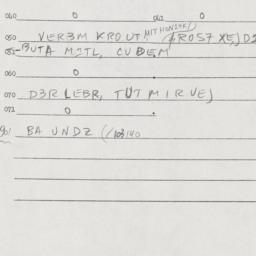 040 0 042 0
050 VERBM KROUT (MIT HONIK) (ROSTXE) D
051-BUTA MITL, CUDEM
060 0
070 D3R LEBR, TUT MIR VEJ
072 0
BA UNDZ (103140